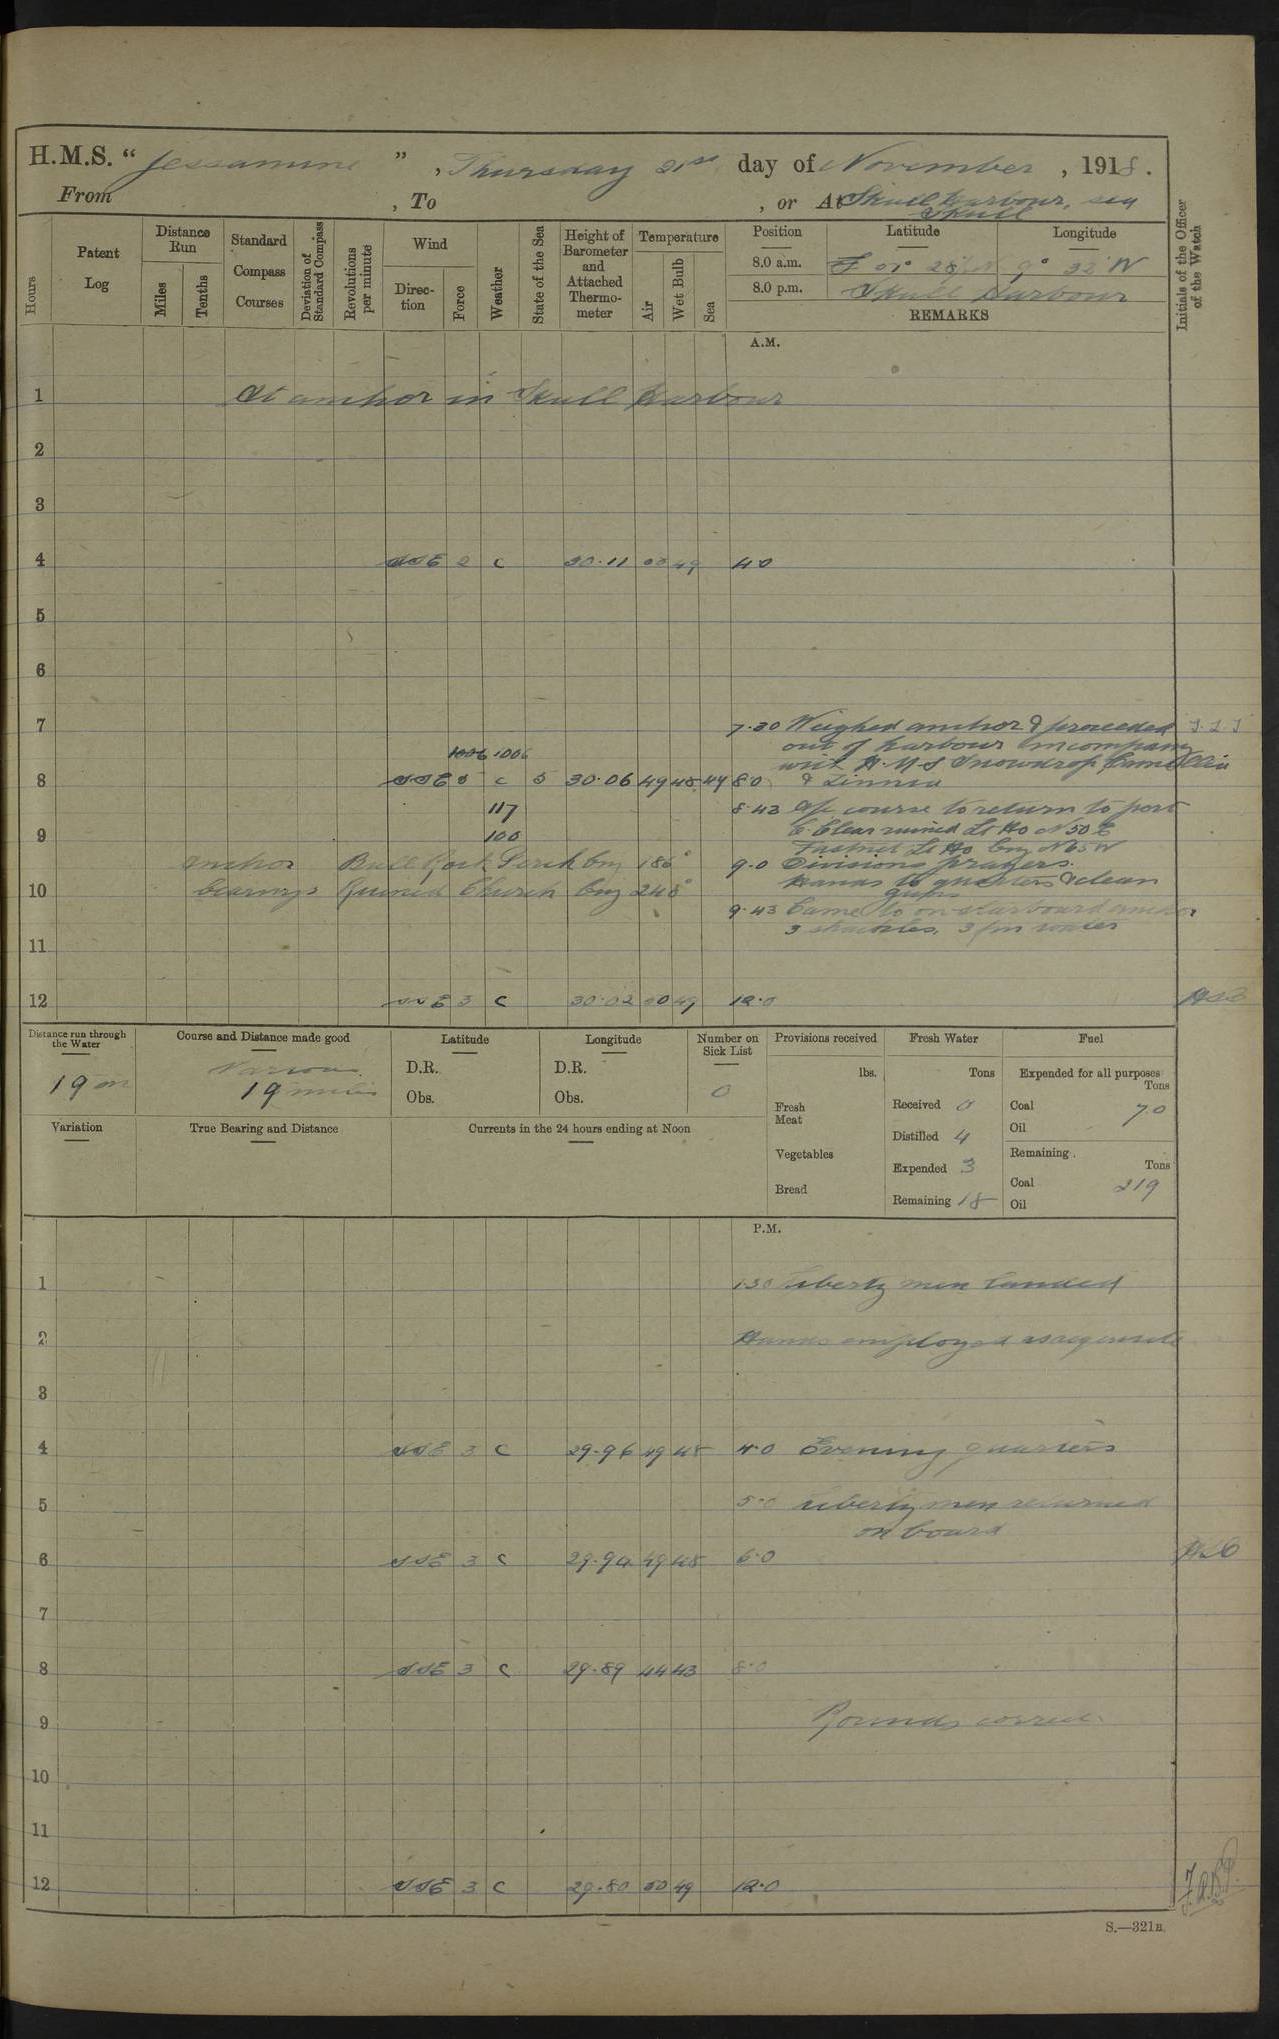 H.M.S. “ Jessamine ” , Thursday 21st day of November , 1918 .
From , To , or At Skull Harbour, sea
Skull
Hours
Patent Log
Distance Run
Miles
Tenths
Standard Compass Courses
Deviation of Standard Compass
Revolutions per minute
Wind
Direction
Force
Weather
State of the Sea
Height of Barometer and Attached Thermometer
Temperature
Air
Wet Bulb
Sea
Position Latitude Longitude
8.0 a.m. 28' N 9° 32' W
8.0 p.m. Skull Harbour
REMARKS
Initials of the Officer of the Watch
A.M.
1 At anchor in Skull Harbour
2
3
4 SSE 2 c 30.11 50 49 4.0
5
6
7 7.30 Weighed anchor & proceeded
1006 1006 out of harbour in company
with H.M.S Snowdrop, Camellia
8 SSE 5 c 5 30.06 49 48 49 8.0 & Zinnia
117 8.43 a/c course to return to port
9 100 C. Clear ruined Lt Ho N 50 E
Fastnet Lt Ho brg N 65 W
Anchor Bull Rock Perch brg 186° 9.0 Divisions prayers.
10 bearings Ruined Church brg 248° Hands to quarters & clean
guns
9.43 Came to on starboard anchor
11 3 shackles, 3 fm water
12 SSE 3 c 30.02 50 49 12.0
Distance run through the Water
19 m
Course and Distance made good
Various.
19 miles
Latitude
D.R.
Obs.
Longitude
D.R.
Obs.
Number on Sick List
0
Provisions received
lbs.
Fresh Meat
Vegetables
Bread
Fresh Water
Tons
Received 0
Distilled 4
Expended 3
Remaining 18
Fuel
Expended for all purposes
Tons
Coal 70
Oil
Remaining
Tons
Coal 219
Oil
Variation
True Bearing and Distance
Currents in the 24 hours ending at Noon
P.M.
1 1.30 Liberty men landed
2 Hands employed as requisite
3
4 SSE 3 c 29.96 49 48 4.0 Evening quarters
5 5.0 Liberty men returned
on board
6 SSE 3 c 29.94 49 48 6.0
7
8 SSE 3 c 29.89 44 43 8.0
9 Rounds correct.
10
11
12 SSE 3 c 29.80 50 49 12.0
S.—321B.